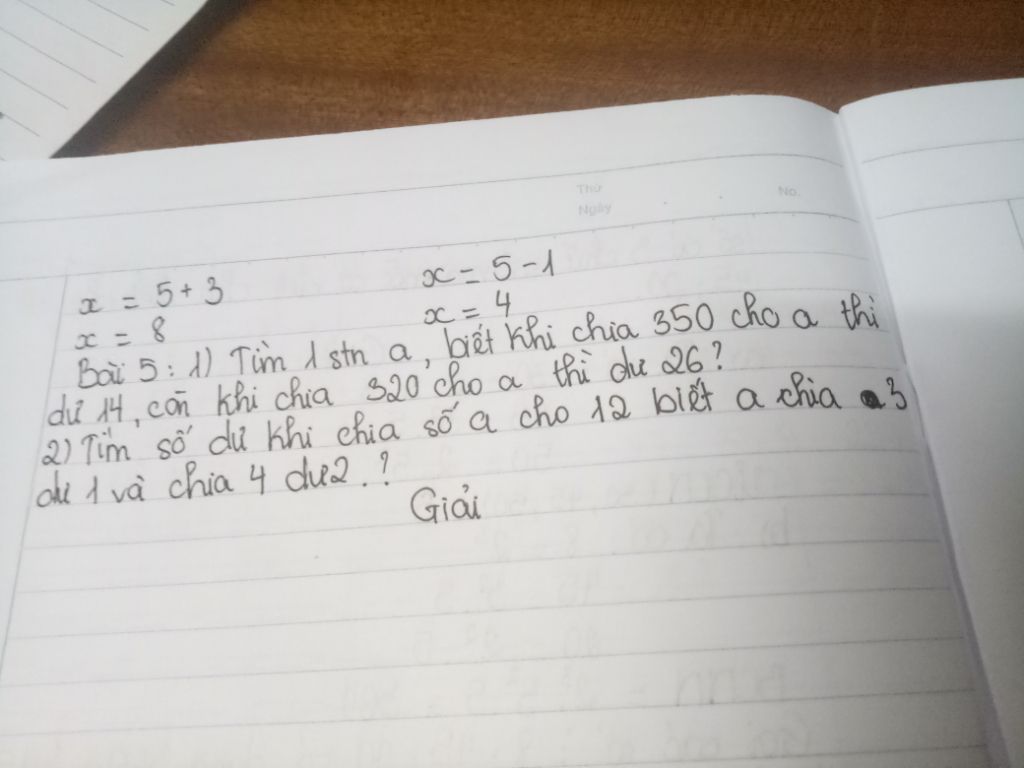 Thứ
No.
Ngày
x = 5 + 3
x = 5 - 1
x = 8
x = 4
Bài 5 : 1) Tìm 1 stn a, biết khi chia 350 cho a thì
dư 14, còn khi chia 320 cho a thì dư 26?
2) Tìm số dư khi chia số a cho 12 biết a chia 3
dư 1 và chia 4 dư 2.?
Giải